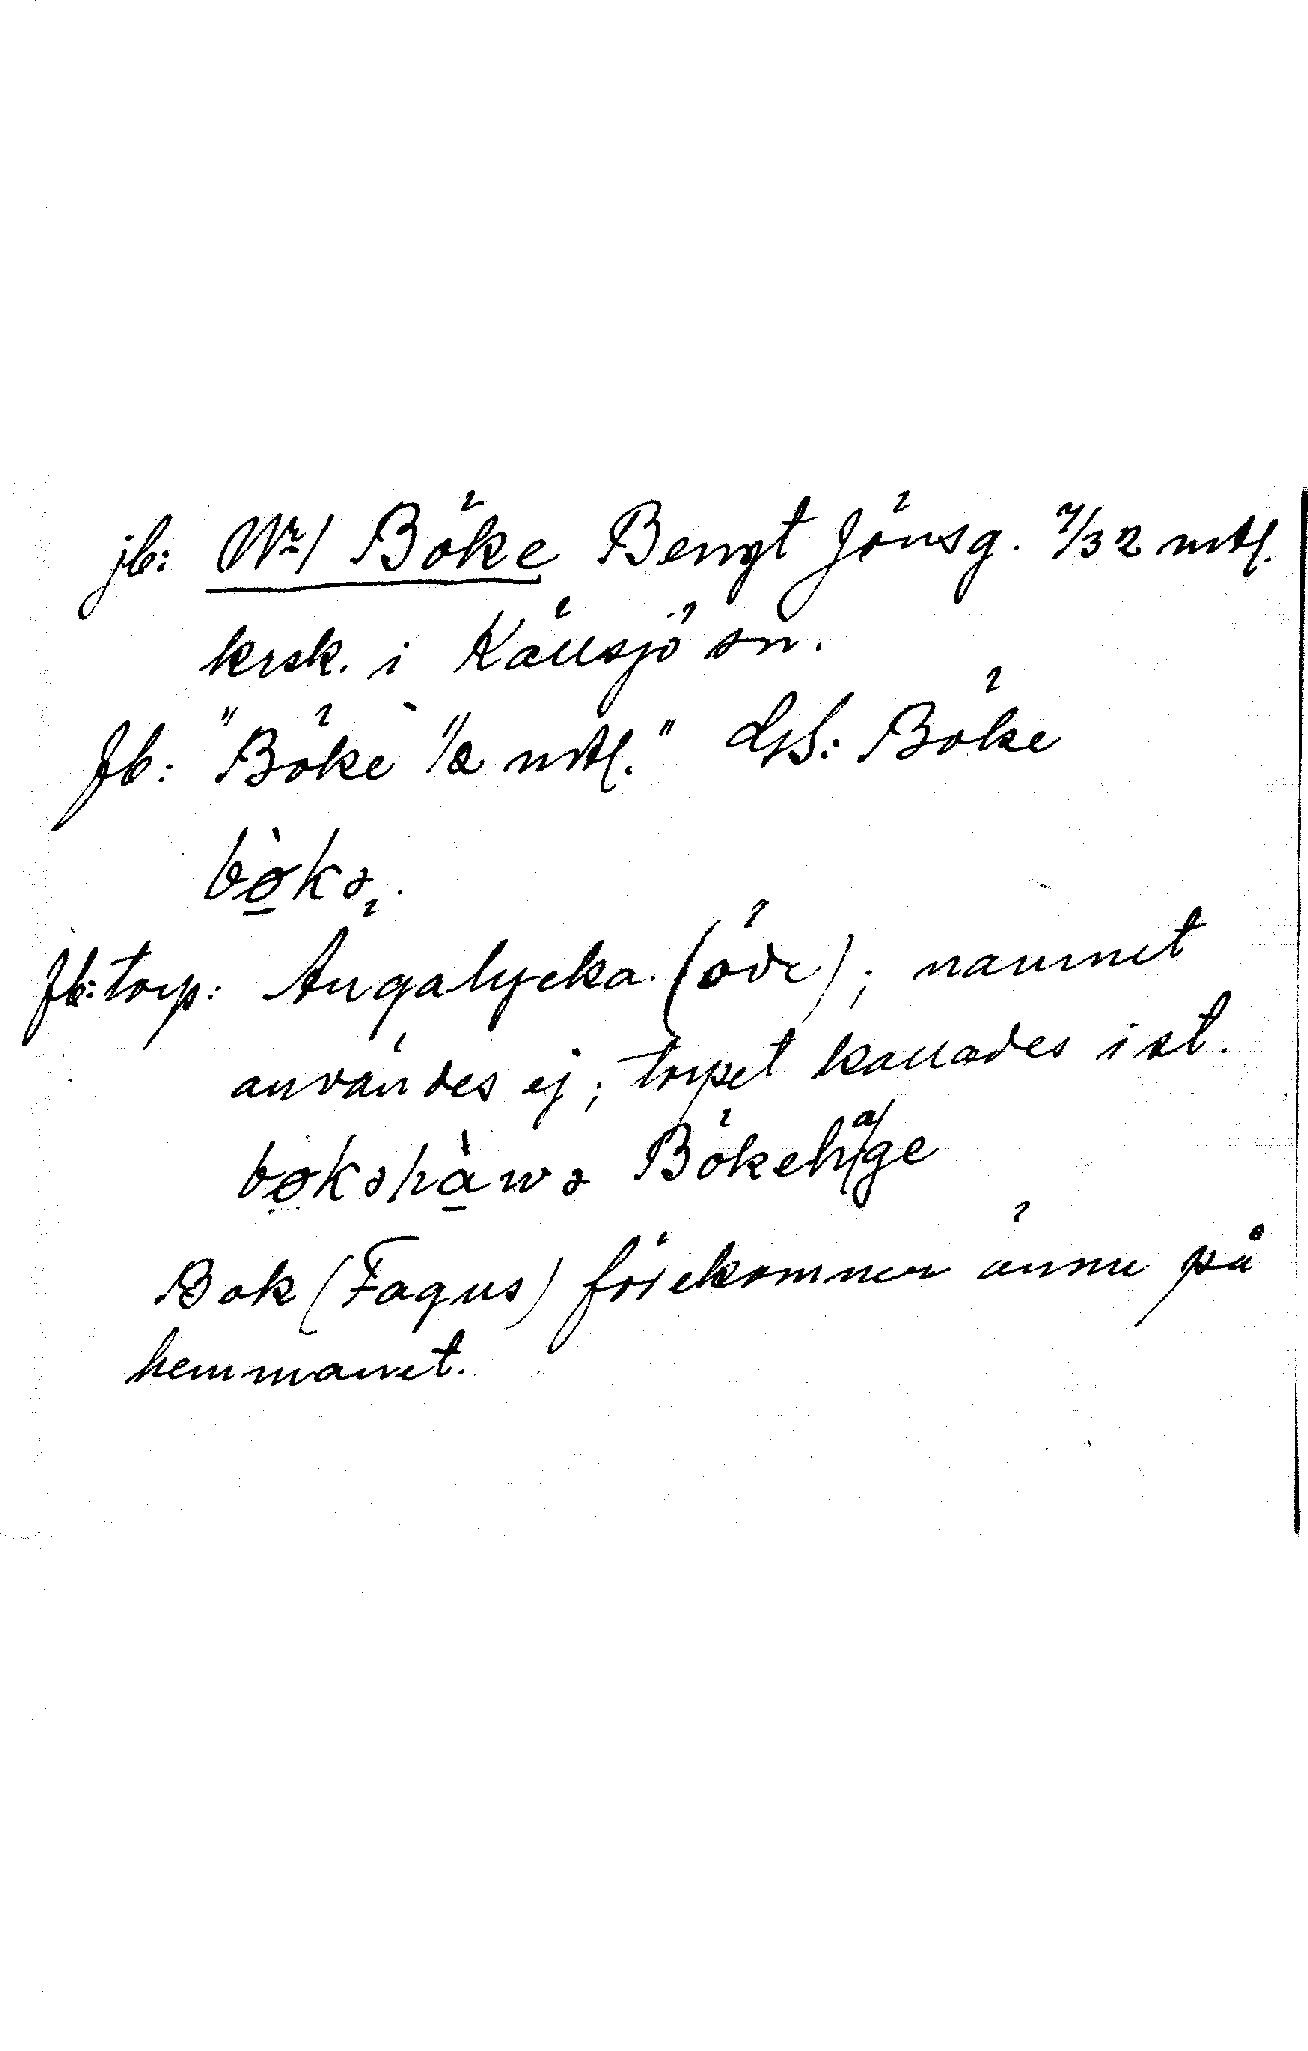 jb: Nr 1 Böke Bengt Jönsg. 7/32 mtl.
krsk. i Källsjö sn.
Jb: "Böke 1/2 mtl." GS: Böke
bö̀kə.
Jb: torp: Ängalycka (öde); namnet
användes ej; torpet kallades i st.
bøkəhàwə Bökehage
Bok (Fagus) förekommer ännu på
hemmanet.